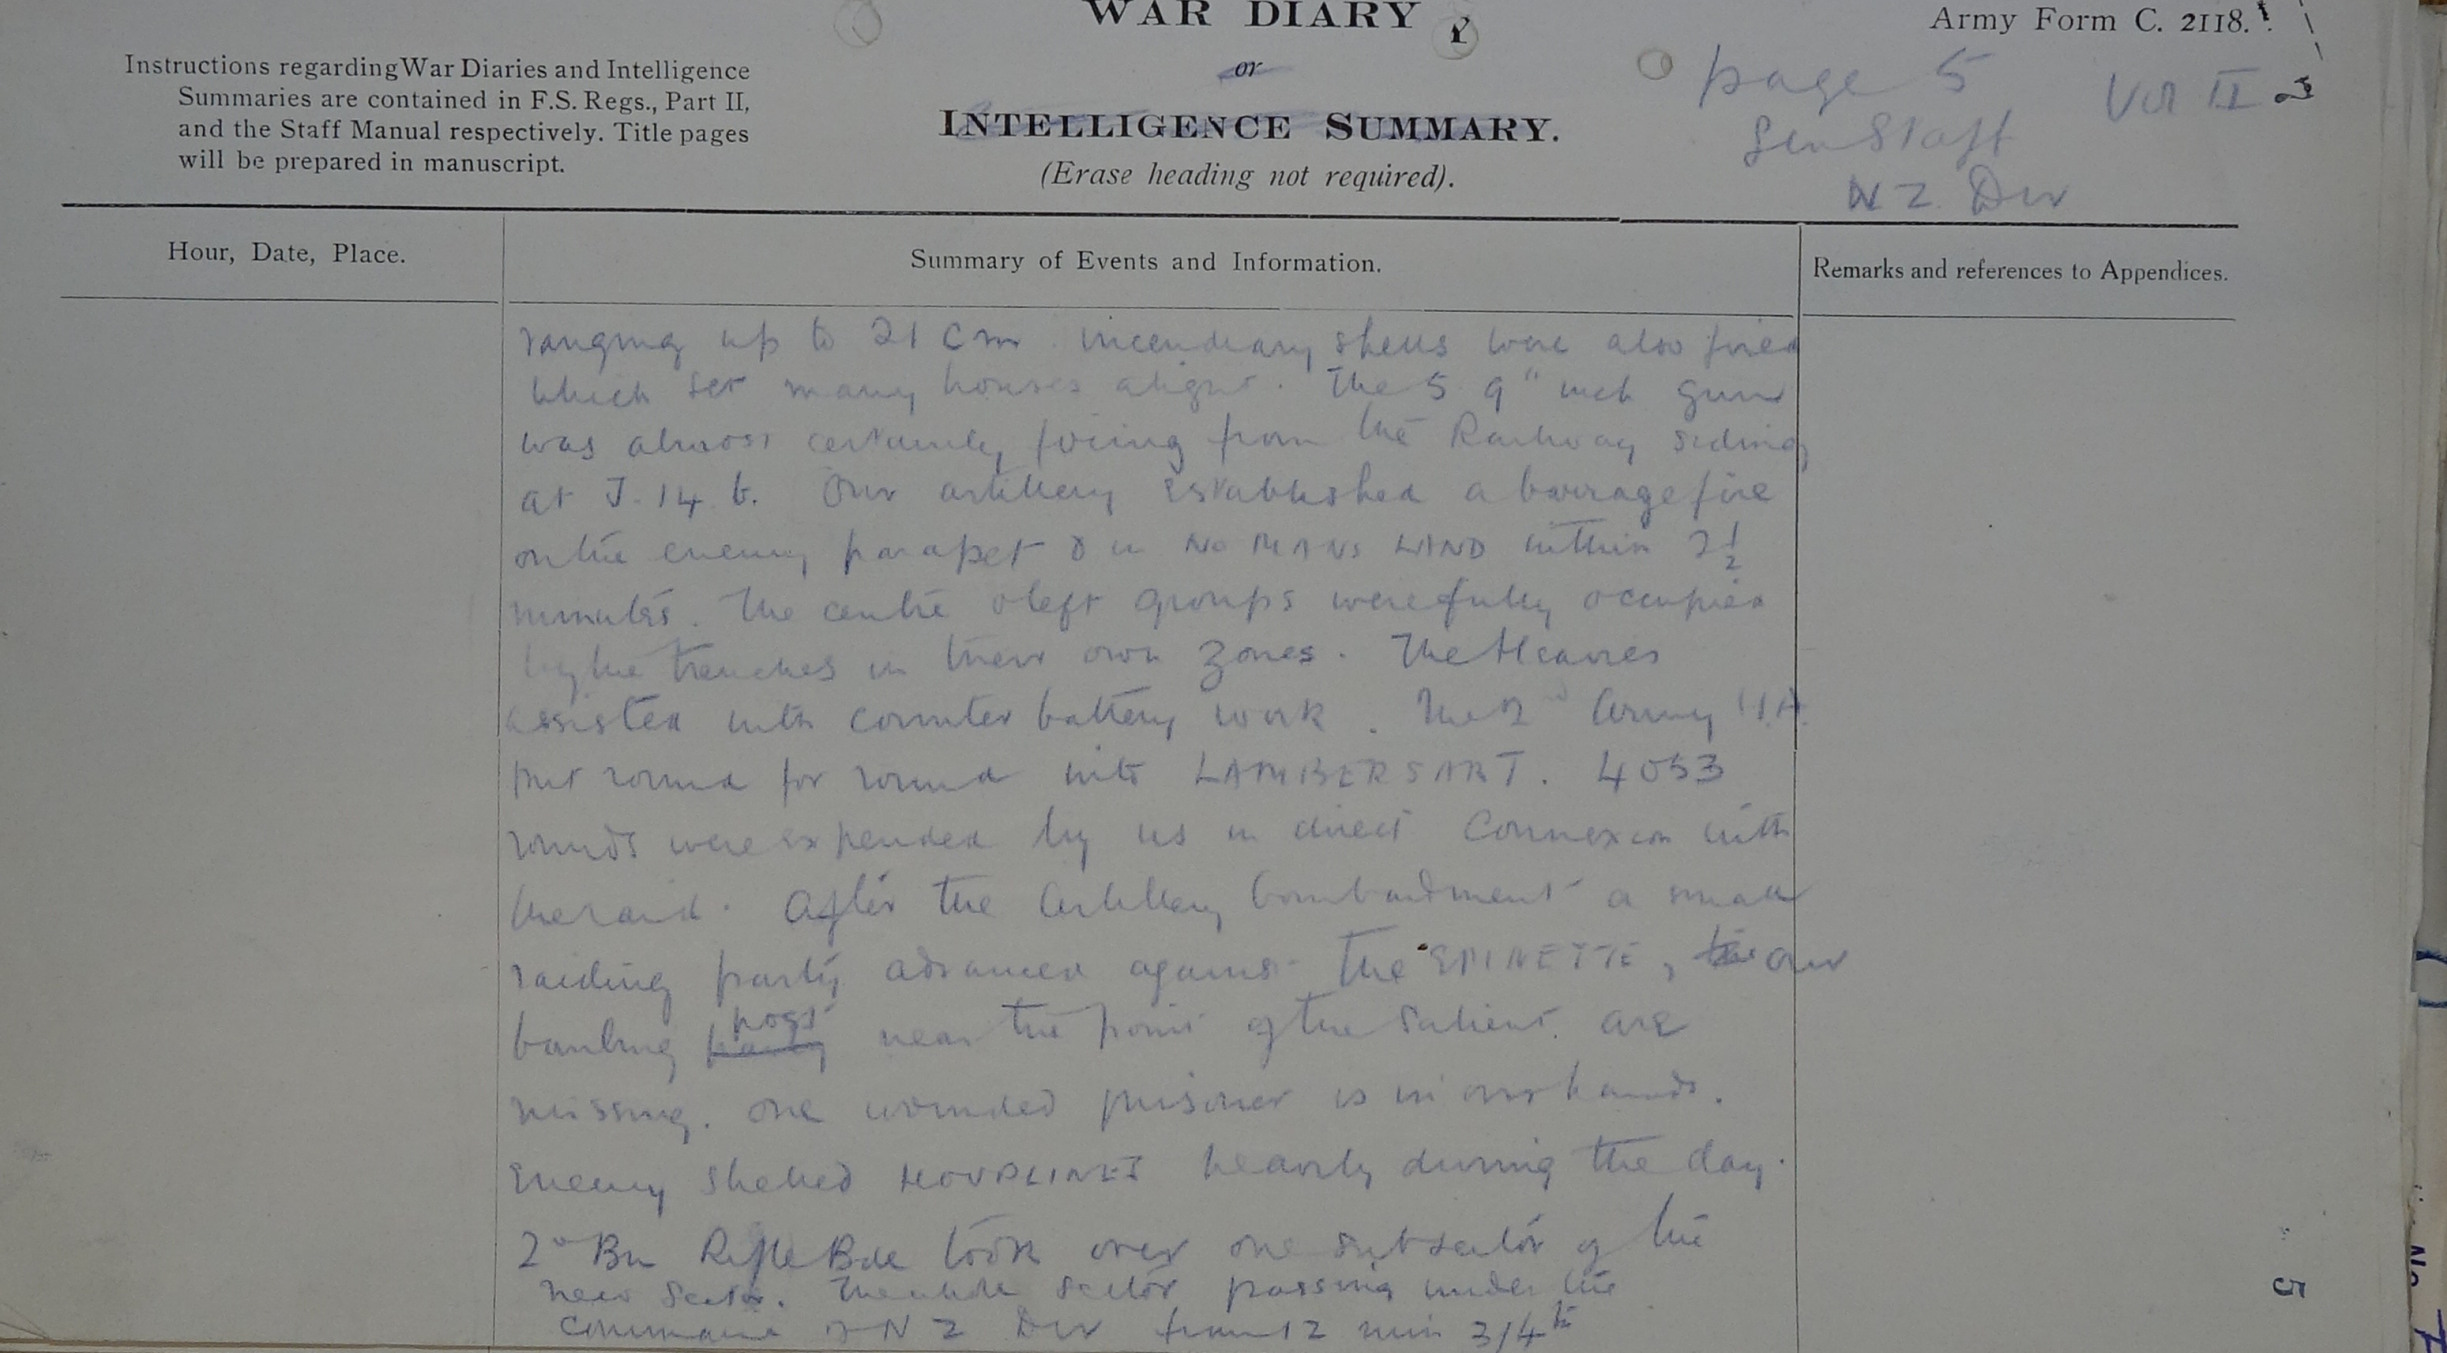 WAR DIARY
or
INTELLIGENCE SUMMARY.
(Erase heading not required).
Army Form C. 2118.
Instructions regarding War Diaries and Intelligence
Summaries are contained in F.S. Regs., Part II,
and the Staff Manual respectively. Title pages
will be prepared in manuscript.
page 5
Vol II
Gen Staff
N Z. Div
Hour, Date, Place.
Summary of Events and Information.
Remarks and references to Appendices.
ranging up to 21 cm incendiary shells were also fired
which set many houses alight. The 5 9" inch gun
was almost certainly firing from the Railway siding
at J. 14 b. Our artillery established a barrage fire
on the enemy parapet & in NO MANS LAND within 2 1/2
minutes. The centre & left groups were fully occupied
by the trenches in their own zones. The Heavies
assisted with counter battery work. The 2nd Army H.A.
put round for round into LAMBERSART. 4053
rounds were expended by us in direct connexion with
the raid. After the Artillery bombardment a small
raiding party advanced against the EPINETTE, our
bombing party post near the point of the salient. are
missing. one wounded prisoner is in our hands.
Enemy shelled HOUPLINES heavily during the day.
2d Bn Rifle Bde took over one subsector of the
new sector. The whole sector passing under the
command of N Z Div from 12 mn 3/4th
5